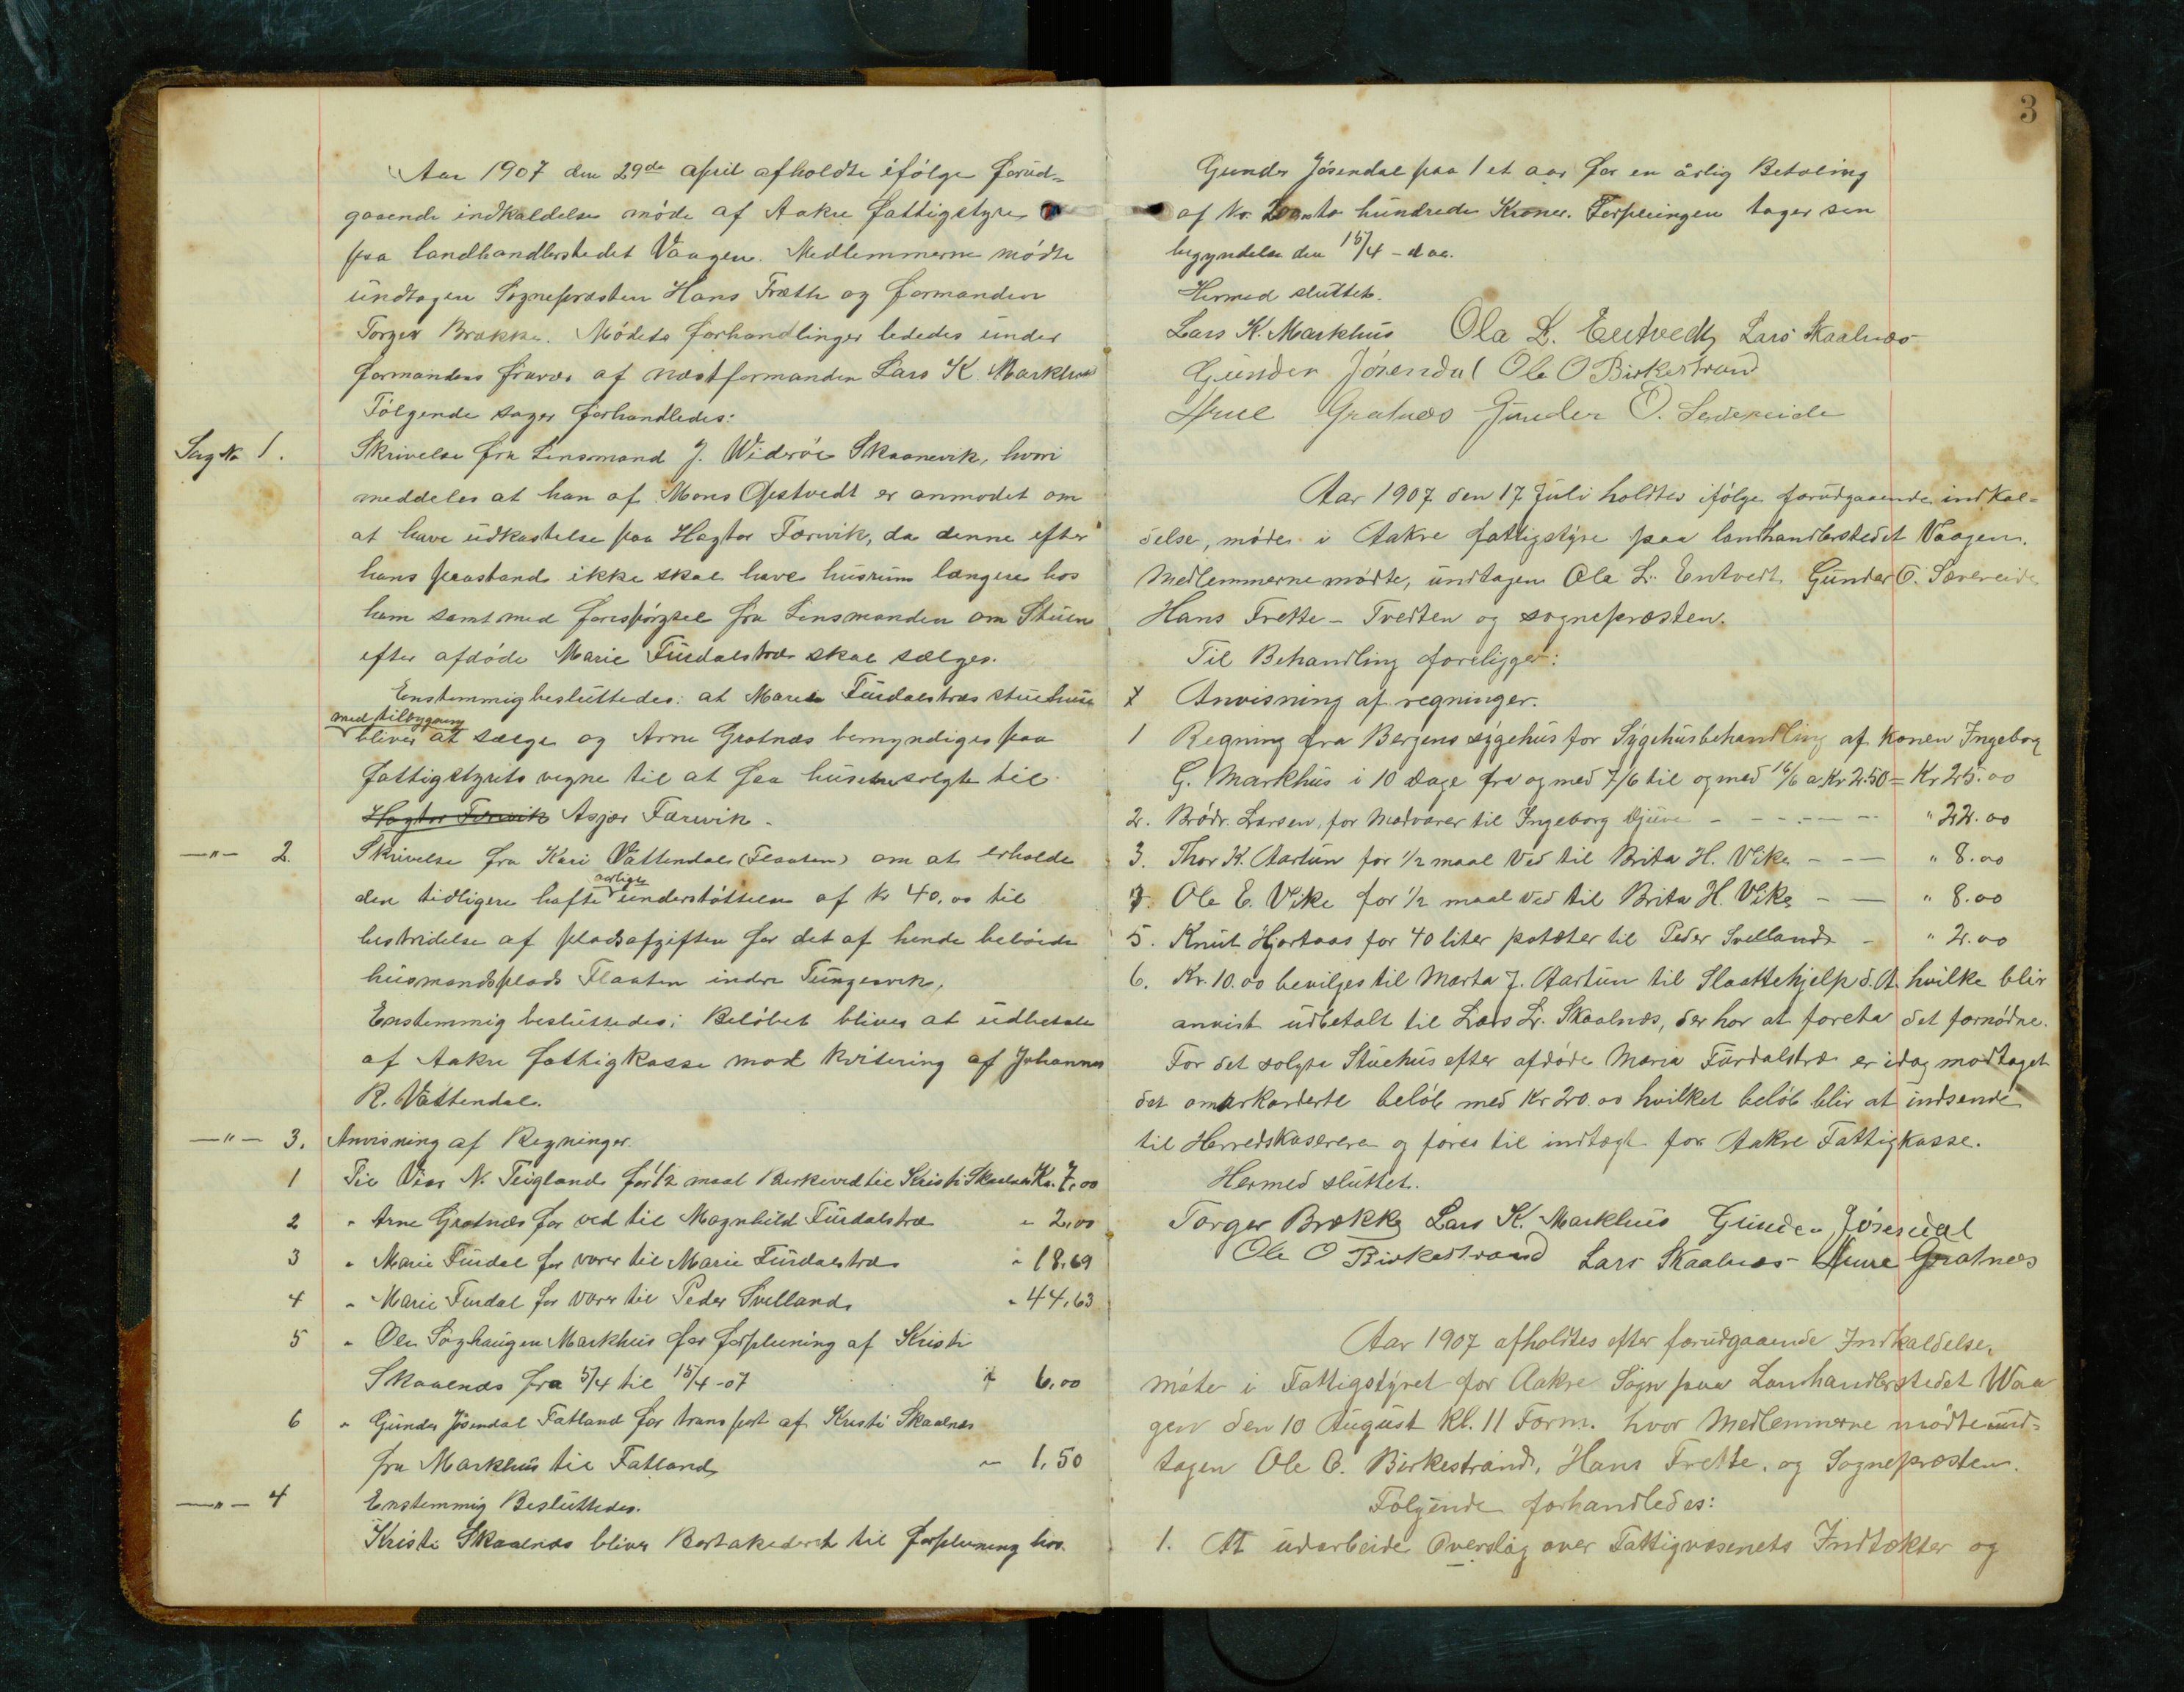 Aar 1907 den 29de april afholdte ifølge forud-
gaaende indkaldelse møde af Aakre fattigstyre
paa landhandlerstedet Vaagen. Medlemmerne mødte
undtagen Sognepræsten Hans Træth og formanden
Torger Brække. Mødets forhandlinger lededes under
formandens fravær af næstformanden Lars K. Markhus
Følgende sager forhandledes:
Sag No 1. Skrivelse fra Lensmand J. Widerøe Skaanevik, hvori
meddeles at han af Mons Opstvedt er anmodet om
at have udkastelse paa Hagtor Færvik, da denne efter
hans paastand ikke skal have husrum længere hos
ham samt med forespørgsel fra Lensmanden om Stuen
efter afdøde Marie Furdalstræ skal sælges.
Enstemmig besluttedes: at Marie Furdalstræs stuehus
med tilbygning
bliver at sælge og Arne Grotnæs bemyndiges paa
fattigstyrets vegne til at faa husene solgte til
Hagtor Færvik Asjær Færvik.
—"— 2. Skrivelse fra Kari Vattendal (Flaaten) om at erholde
den tidligere hafte aarlige understøttelse af kr 40,00 til
bestridelse af pladsafgiften for det af hende beboede
husmandsplads Flaaten indre Tungesvik,
Enstemmig besluttedes: Beløbet bliver at udbetale
af Aakre fattigkasse mod kvitering af Johannes
R. Vattendal.
—"— 3. Anvisning af Regninger.
1 Til Vier N. Teigland for 1/2 maal Birkeved til Kristi Skaalnæs Kr. 7,00
2 " Arne Grotnæs for ved til Magnhild Furdalstræ " 2,00
3 " Marie Furdal for varer til Marie Furdalstræ " 18,69
4 " Marie Furdal for varer til Peder Svelland " 44,63
5 " Ole Søghaugen Markhus for forpleining af Kristi
Skaalnæs fra 5/4 til 15/4-07 " 6,00
6 " Gunder Jøsendal Fatland for transport af Kristi Skaalnæs
fra Markhus til Fatland " 1,50
—"— 4 Enstemmig Besluttedes.
Kristi Skaalnæs bliver Bortakederet til forpleining hos
3
Gunder Jøsendal paa 1 et aar for en årlig Betaling
af Kr. 200 to hundrede Kroner. Forpleiningen tager sin
begyndelse den 15/4 - d aa.
Hermed sluttet.
Lars K. Markhus Ola L. Entvedt Lars Skaalnæs
Gunder Jøsendal Ole O Birkestrand
Arne Grotnæs Gunder O. Sævereide
Aar 1907 den 17 Juli holdtes ifølge forudgaaende indkal-
delse, møde i Aakre fattigstyre paa landhandlerstedet Vaagen.
Medlemmerne mødte, undtagen Ola L. Entvedt Gunder O. Sævereide
Hans Trette - Tvedten og sognepræsten.
Til Behandling foreligger:
Anvisning af regninger.
1 Regning fra Bergens sygehus for Sygehusbehandling af konen Ingeborg
G. Markhus i 10 Dage fra og med 7/6 til og med 16/6 a Kr 2.50 = Kr 25.00
2. Brødr. Larsen, for Madvarer til Ingeborg Djuve - - - - - " 22.00
3. Thor K. Aartun for 1/2 maal Ved til Brita H. Vike - - " 8.00
4. Ole E. Vike for 1/2 maal ved til Brita H. Vike - - " 8.00
5. Knut Hjortaas for 40 liter poteter til Peder Svelland - " 2.00
6. Kr. 10.00 bevilges til Marta J. Aartun til Slaattehjelp d.A. hvilke blir
anvist udbetalt til Lars Lr. Skaalnæs, der har at foreta det fornødne.
For det solgte Stuehus efter afdøde Maria Furdalstræ er idag modtaget
det omakorderte beløb med Kr 20.00 hvilket beløb blir at indsende
til Herredskasereren og føres til indtægt for Aakre Fattigkasse.
Hermed sluttet.
Torger Brække Lars K. Markhus Gunder Jøsendal
Ole O Birkestrand Lars Skaalnæs Arne Grotnæs
Aar 1907 afholdtes efter forudgaaende Indkaldelse,
møte i Fattigstyret for Aakre Sogn paa Landhandlerstedet Waa
gen den 10 August Kl. 11 Form. hvor Medlemmerne mødte und-
tagen Ole O. Birkestrand, Hans Trette, og Sognepræsten.
Følgende forhandledes:
1. At udarbeide Overslag over Fattigvæsenets Indtækter og